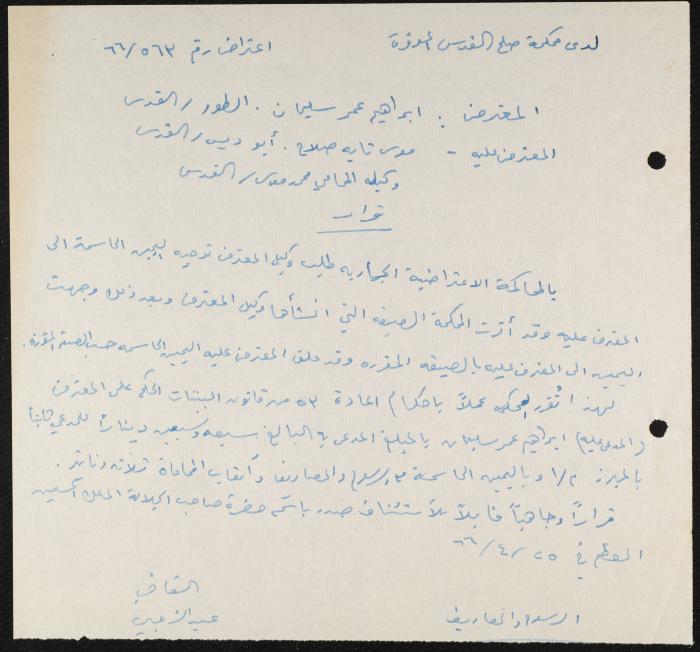 لدى محكمة صلح القدس الموقرة
اعتراض رقم ٥٦٣/٦٦
المعترض : ابراهيم عمر سليمان . الطور / القدس
المعترض عليه - موسى تايه صلاح . أبو ديس / القدس
وكيله المحامي محمد موسى / القدس
قرار
بالمحاكمة الاعتراضية الجارية طلب وكيل المعترض توجيه اليمين الحاسمة الى
المعترض عليه وقد أقرت المحكمة الصيغه التي انشأها وكيل المعترض وبعد ذلك وجهت
اليمين الى المعترض عليه بالصيغه المقرره وقد حلف المعترض عليه اليمين الحاسمه حسب الصيغة المقررة .
لهذا تقرر المحكمه عملاً باحكام المادة ٥٣ من قانون البينات الحكم على المعترض
(المدعى عليه) ابراهيم عمر سليمان بالمبلغ المدعى به البالغ سبعه وسبعين ديناراً للمدعي ثابتاً
بالمبرز م/١ وباليمين الحاسمة والرسوم والمصاريف وأتعاب المحاماة ثلاثة دنانير .
قراراً وجاهياً قابلاً للاستئناف صدر باسم حضرة صاحب الجلالة الملك الحسين
المعظم في ٢٥/٤/٦٦
القاضي
الرسوم والمصاريف